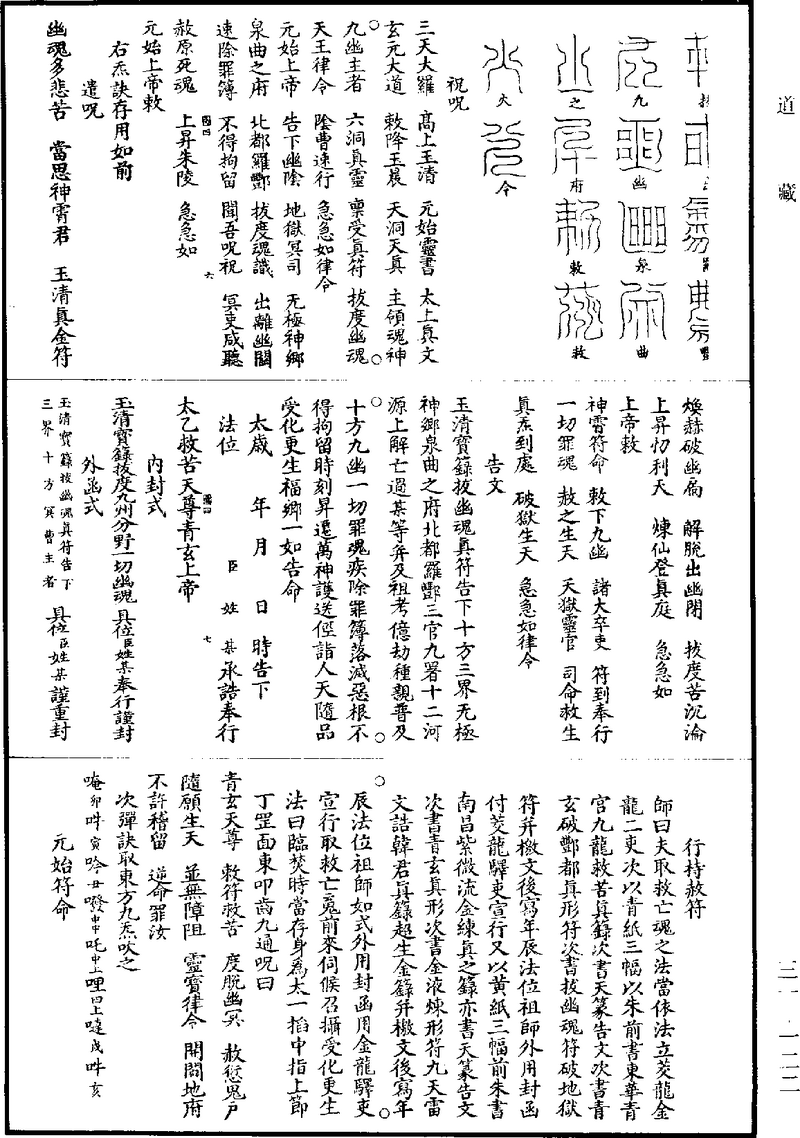 道藏
三一 一二二
九 幽 泉 曲
之 府 敕 赦
火 令
祝呪
三天大羅 高上玉清 元始靈書 太上真文
玄元大道 敕降玉晨 天洞天真 主領魂神
九幽主者 六洞真靈 稟受真符 拔度幽魂
天王律令 陰曹速行 急急如律令
元始上帝 告下幽陰 地獄冥司 无極神鄉
泉曲之府 北都羅酆 拔度魂識 出離幽關
速除罪簿 不得拘留 聞吾呪祝 冥吏咸聽
赦原死魂 上昇朱陵 急急如
元始上帝敕
右炁訣存用如前
遣呪
幽魂多悲苦 當思神霄君 玉清真金符
煥赫破幽扃 解脫出幽閉 拔度苦沉淪
上昇忉利天 煉仙登真庭 急急如
上帝敕
神霄符命 敕下九幽 諸大卒吏 符到奉行
一切罪魂 赦之生天 天獄靈官 司命救生
真炁到處 破獄生天 急急如律令
告文
玉清寶籙拔幽魂真符告下十方三界无極
神鄉泉曲之府北都羅酆三官九署十二河
源上解亡過某等并及祖考億劫種親普及
十方九幽一切罪魂疾除罪簿落滅惡根不
得拘留時刻昇遷萬神護送徑詣人天隨品
受化更生福鄉一如告命
太歲 年 月 日 時告下
法位 臣 姓 某 承誥奉行
太乙救苦天尊青玄上帝
內封式
玉清寶籙拔度九州分野一切幽魂具位臣姓某奉行謹封
外函式
玉清寶籙拔幽魂真符告下
三界十方冥曹主者 具位臣姓某謹重封
行持赦符
師曰夫取救亡魂之法當依法立茭龍金
龍二吏次以青紙三幅以朱前書東華青
宮九龍救苦真籙次書天篆告文次書青
玄破酆都真形符次書拔幽魂符破地獄
符并檄文後寫年辰法位祖師外用封函
付茭龍驛吏宣行又以黃紙三幅前朱書
南昌紫微流金練真之籙亦書天篆告文
次書青玄真形次書金液煉形符九天雷
文誥韓君真籙超生金籙并檄文後寫年
辰法位祖師如式外用封函用金龍驛吏
宣行取救亡魂前來伺候召攝受化更生
法曰臨焚時當存身為太一掐中指上節
丁罡面東叩齒九通呪曰
青玄天尊 敕符救苦 度脫幽冥 赦愆鬼戶
隨願生天 並無障阻 靈寶律令 開闔地府
不許稽留 逆命罪汝
次彈訣取東方九炁吹之
唵卯吽寅唅丑㗶中吒上哩巳上噠戌吽亥
元始符命